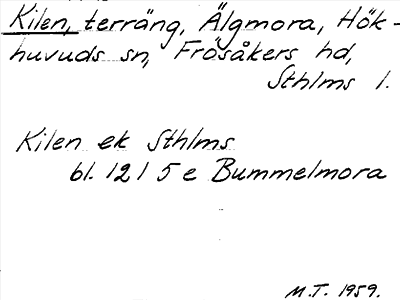 Kilen, terräng, Älgmora, Hök-
huvuds sn, Frösåkers hd,
Sthlms l.
Kilen ek Sthlms
bl. 121 5 e Bummelmora
M.T. 1959.